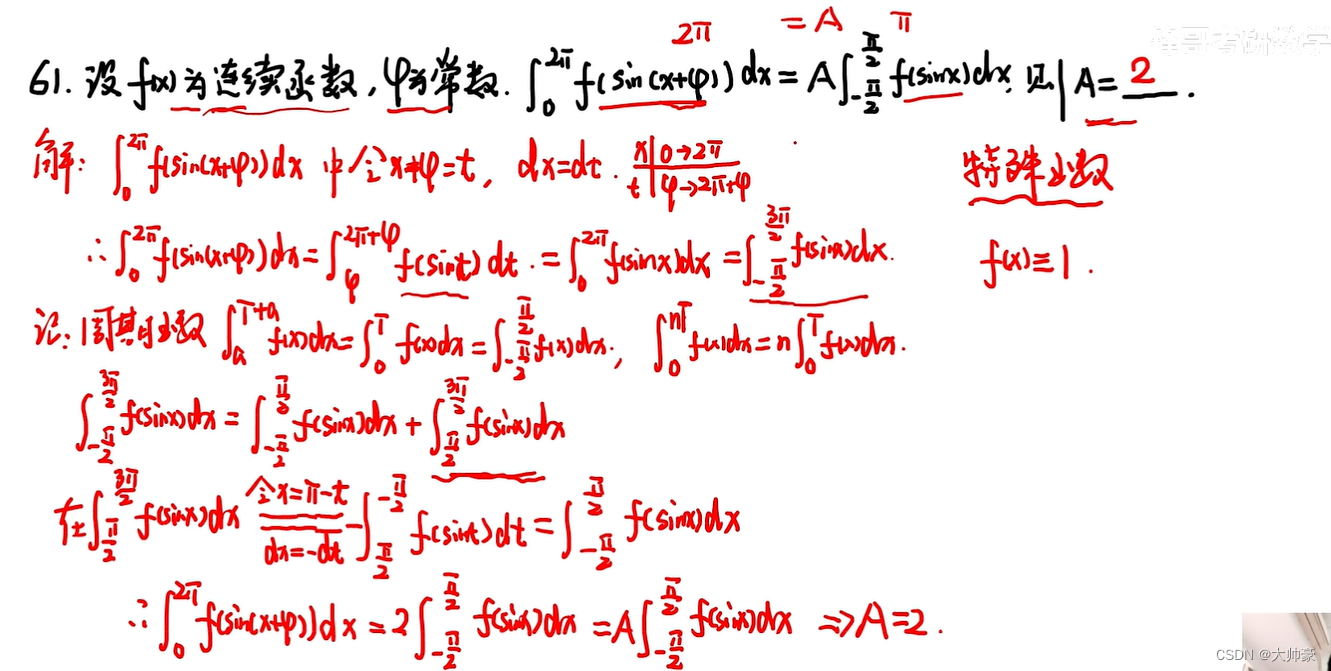 2π = A π
61. 设f(x)为连续函数, φ为常数. ∫₀^{2π} f(sin(x+φ))dx = A∫_{-π/2}^{π/2} f(sinx)dx, 则A=2.
解: ∫₀^{2π} f(sin(x+φ))dx 中令x+φ=t, dx=dt. x|0→2π
t|φ→2π+φ
特殊函数
∴∫₀^{2π} f(sin(x+φ))dx = ∫_φ^{2π+φ} f(sint)dt. = ∫₀^{2π} f(sinx)dx = ∫_{-π/2}^{3π/2} f(sinx)dx.
f(x)≡1.
记: 周期函数 ∫_a^{T+a} f(x)dx = ∫₀^T f(x)dx = ∫_{-π/2}^{π/2} f(x)dx, ∫₀^{nT} f(x)dx = n∫₀^T f(x)dx.
∫_{-π/2}^{3π/2} f(sinx)dx = ∫_{-π/2}^{π/2} f(sinx)dx + ∫_{π/2}^{3π/2} f(sinx)dx
在∫_{π/2}^{3π/2} f(sinx)dx 令x=π-t dx=-dt -∫_{π/2}^{-π/2} f(sint)dt = ∫_{-π/2}^{π/2} f(sinx)dx
∴∫₀^{2π} f(sin(x+φ))dx = 2∫_{-π/2}^{π/2} f(sinx)dx = A∫_{-π/2}^{π/2} f(sinx)dx ⇒ A=2.
CSDN @大帅豪